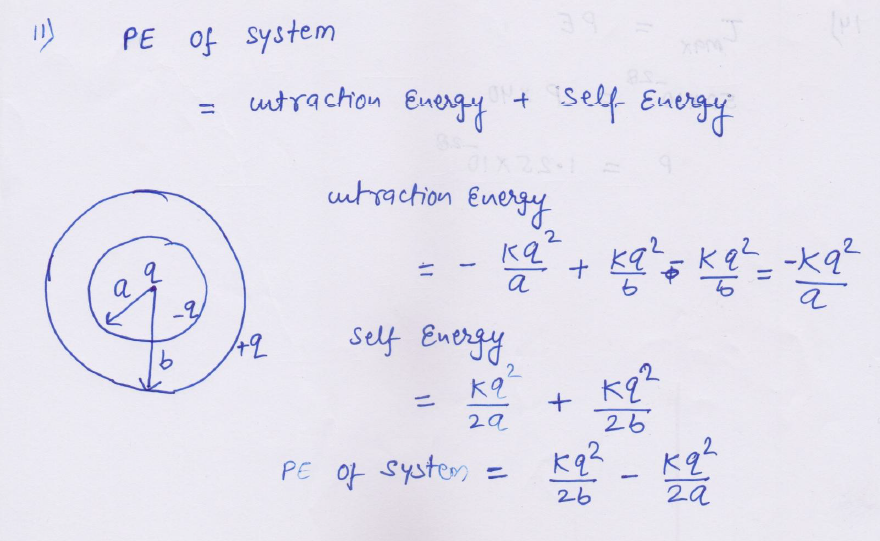 11) PE of system
= intraction Energy + Self Energy
intraction Energy
= - Kq²/a + Kq²/b - Kq²/b = -Kq²/a
a q -q
b +q
Self Energy
= Kq²/2a + Kq²/2b
PE of system = Kq²/2b - Kq²/2a